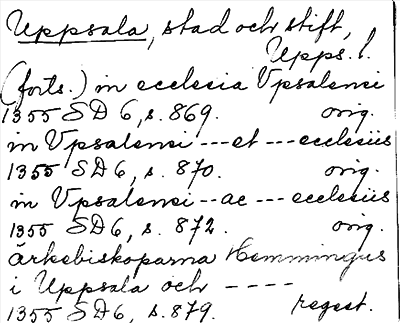 Uppsala, stad och stift,
Upps. l.
(forts.) in ecclesia Vpsalensi
1355 SD 6, s. 869. orig.
in Vpsalensi --- et --- ecclesiis
1355 SD 6, s. 870. orig.
in Vpsalensi -- ac --- ecclesiis
1355 SD 6, s. 872. orig.
ärkebiskoparna Hemmingus
i Uppsala och ----
1355 SD 6, s. 879. regest.